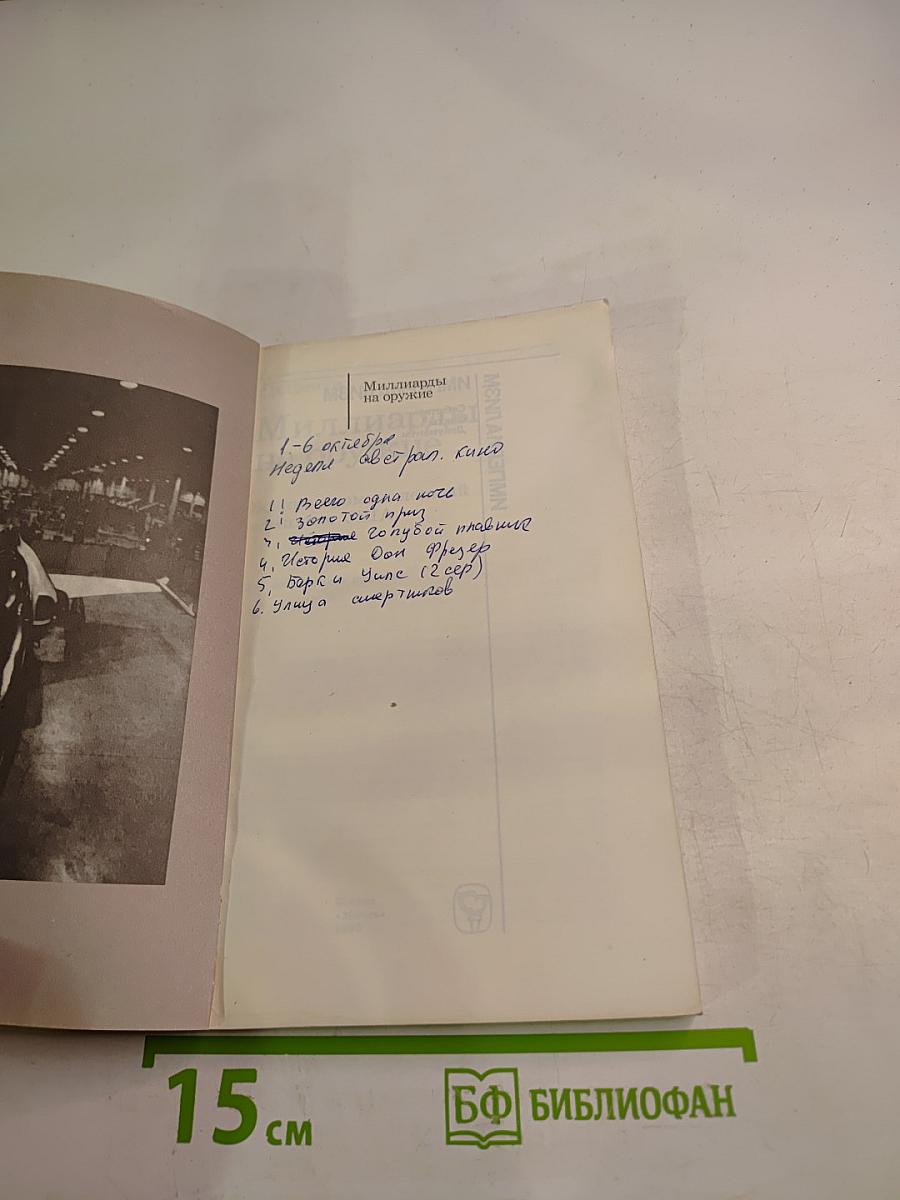 Миллиарды
на оружие
1-6 октября
Неделя австрал. кино
1! Всего одна ночь
2! Золотой приз
3, История голубой плавник
4, История Дон Фрезер
5, Берк и Уилс (2 сер)
6. Улица смертников
15 см
БФ БИБЛИОФАН